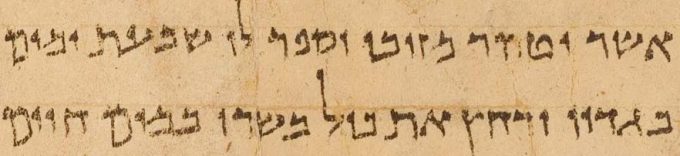 אשר יטהר מזובו וספר לו שבעת ימים
בגדיו ורחץ את כול בשרו במים חיים